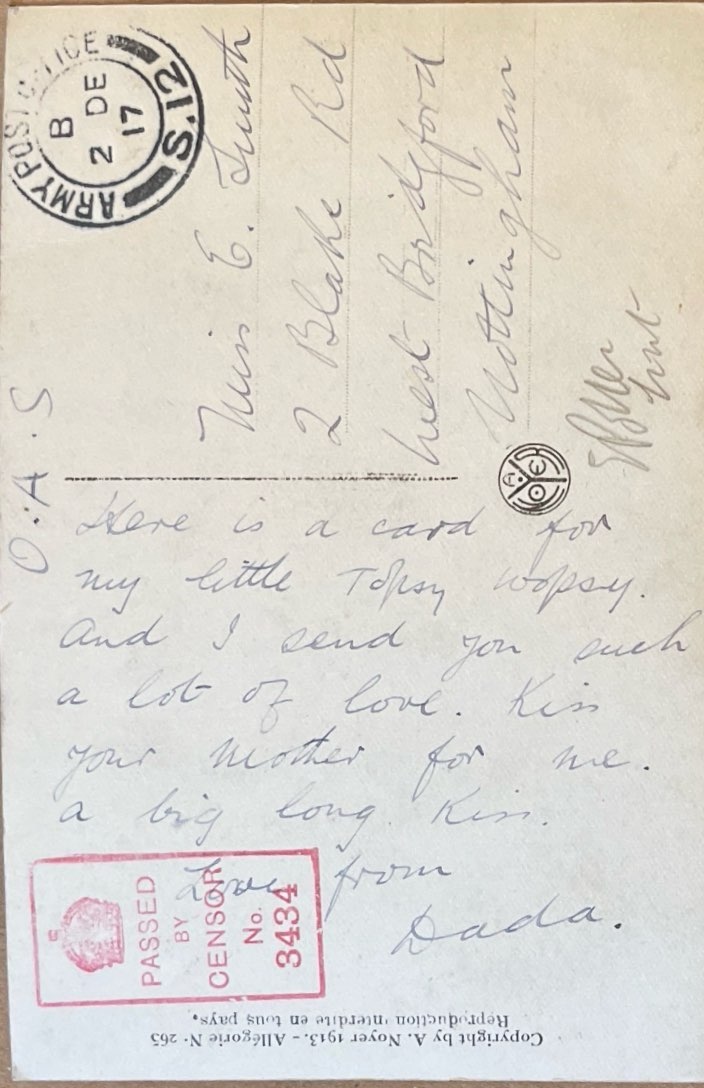 ARMY POST OFFICE
S.12
B
2 DE
17
O.A.S
Miss E. Smith
2 Blake Rd
West Bridgford
Nottingham
Here is a card for
my little Topsy Wopsy.
And I send you such
a lot of love. Kiss
your Mother for me.
a big long Kiss.
Love from
Dada.
PASSED
BY
CENSOR
No.
3434
A. NOYER
Copyright by A. Noyer 1913. - Allégorie N· 265
Reproduction interdite en tous pays.